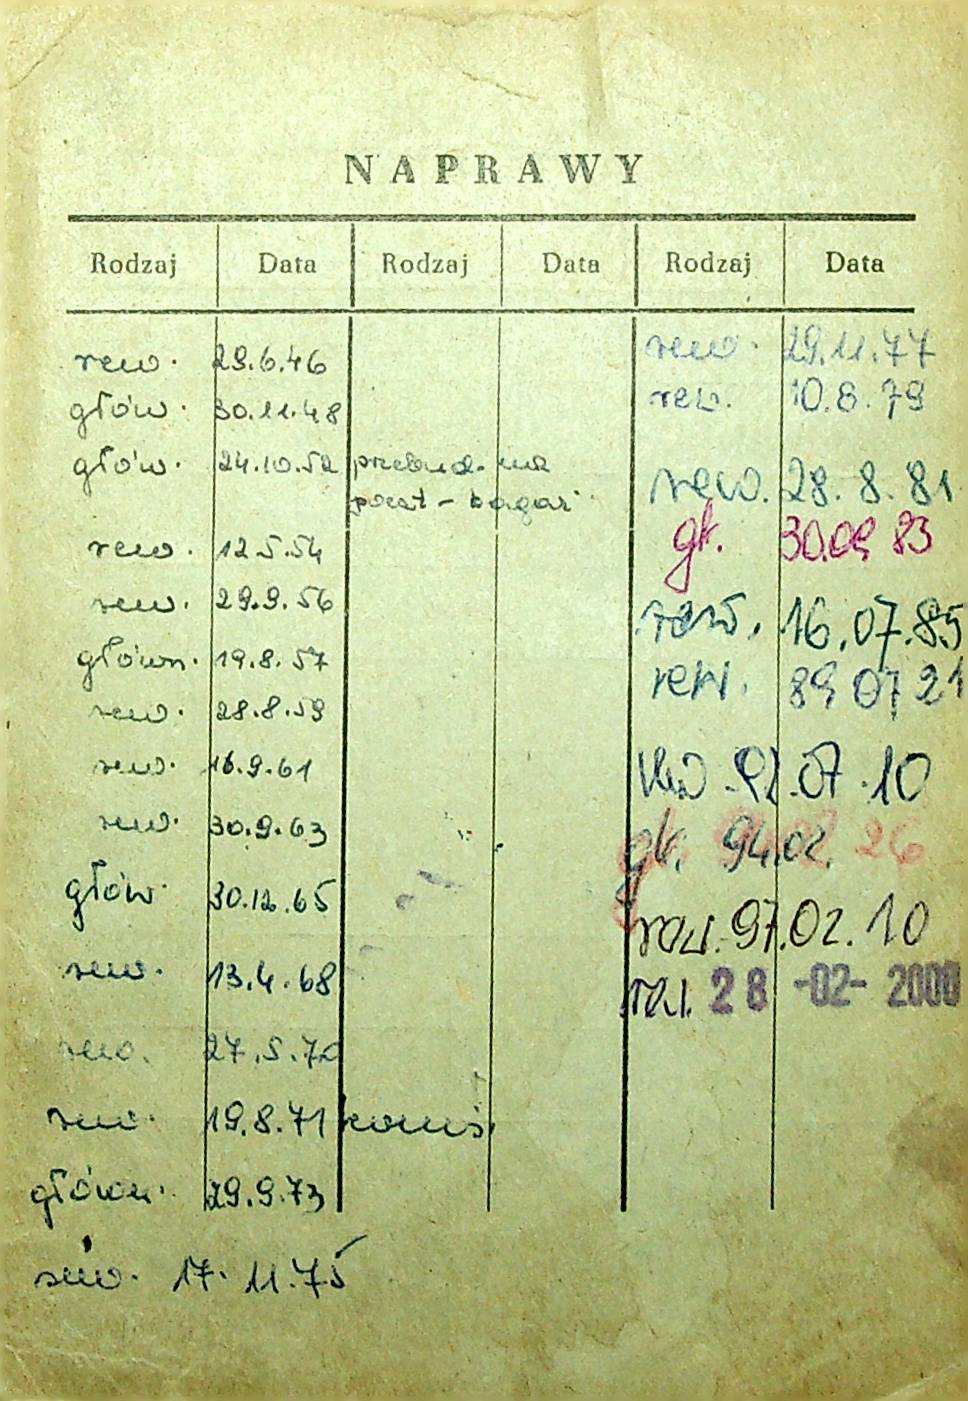 NAPRAWY
Rodzaj Data Rodzaj Data Rodzaj Data
rew. 29.6.46
głów. 30.11.48
głów. 24.10.52 przebud. na
poczt-bagaż
rew. 12.5.54
rew. 29.9.56
główn. 19.8.57
rew. 28.8.59
rew. 16.9.61
rew. 30.9.63
głów. 30.12.65
rew. 13.4.68
rew. 27.5.70
rew. 19.8.71
główn. 29.9.73
rew. 17.11.75
rew. 29.11.77
rew. 10.8.79
rew. 28.8.81
gł. 30.09 83
rew. 16.07.85
rew. 89 07 21
rew. 92.07.10
gł. 94.02. 26
rew. 97.02.10
rew. 28 -02- 2000